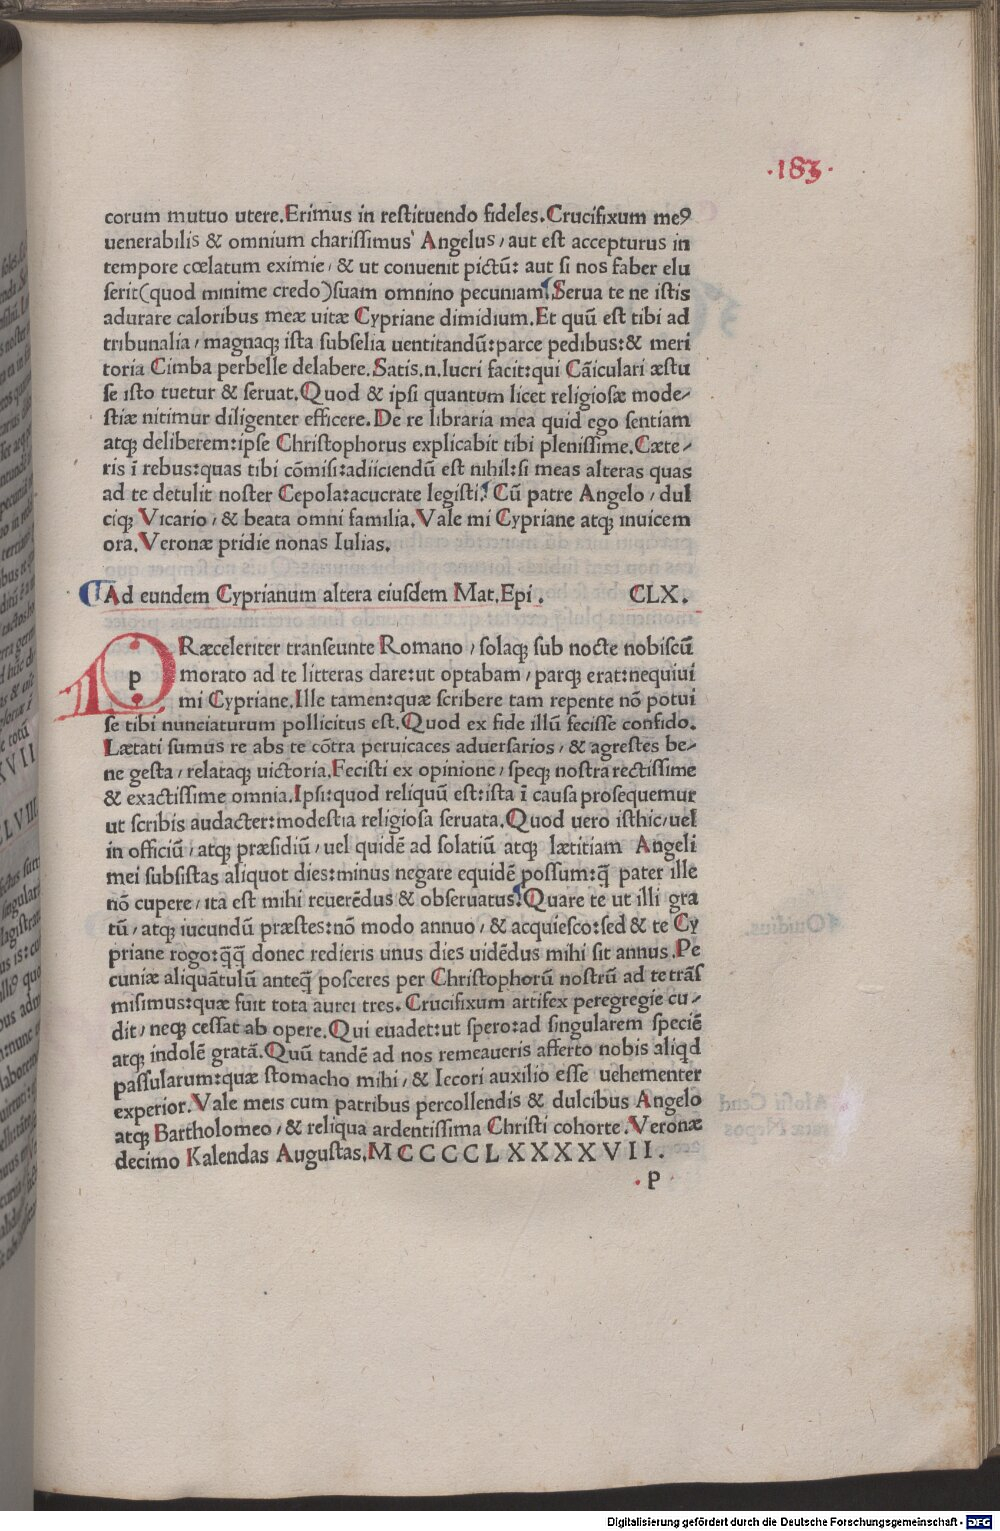 ·183·
corum mutuo utere.Erimus in restituendo fideles.Crucifixum meꝰ
uenerabilis & omnium charissimus Angelus/aut est accepturus in
tempore cœlatum eximie/& ut conuenit pictū: aut si nos faber elu
serit(quod minime credo)suam omnino pecuniam.Serua te ne istis
adurare caloribus meæ uitæ Cypriane dimidium.Et quū est tibi ad
tribunalia/magnaqȝ ista subselia uentitandū:parce pedibus:& meri
toria Cimba perbelle delabere.Satis.n.lucri facit:qui Cāiculari æstu
se isto tuetur & seruat.Quod & ipsi quantum licet religiosæ mode/
stiæ nitimur diligenter efficere.De re libraria mea quid ego sentiam
atqȝ deliberem:ipse Christophorus explicabit tibi plenissime.Cæte/
ris ī rebus:quas tibi cōmisi:adiiciendū est nihil:si meas alteras quas
ad te detulit noster Cepola:acucrate legisti. Cū patre Angelo/dul
ciqȝ Vicario/& beata omni familia.Vale mi Cypriane atqȝ inuicem
ora.Veronæ pridie nonas Iulias.
Ad eundem Cyprianum altera eiusdem Mat.Epi. CLX.
PRæceleriter transeunte Romano/solaqȝ sub nocte nobiscū
p morato ad te litteras dare:ut optabam/parqȝ erat:nequiui
mi Cypriane.Ille tamen:quæ scribere tam repente nō potui
se tibi nunciaturum pollicitus est.Quod ex fide illū fecisse confido.
Lætati sumus re abs te cōtra peruicaces aduersarios/& agrestēs be/
ne gesta/relataqȝ uictoria.Fecisti ex opinione/speqȝ nostra rectissime
& exactissime omnia.Ipsi:quod reliquū est:ista ī causa prosequemur
ut scribis audacter:modestia religiosa seruata.Quod uero isthic/uel
in officiū/atqȝ præsidiū/uel quidē ad solatiū atqȝ lætitiam Angeli
mei subsistas aliquot dies:minus negare equidē possum:q̄ pater ille
nō cupere/ita est mihi reuerēdus & obseruatus.Quare te ut illi gra
tū/atqȝ iucundū præstes:nō modo annuo/& acquiesco:sed & te Cy
priane rogo:q̄q̄ donec redieris unus dies uidēdus mihi sit annus.Pe
cuniæ aliquātulū anteq̄ posceres per Christophorū nostrū ad te trās
misimus:quæ fuit tota aurei tres.Crucifixum artifex peregregie cu/
dit/neqȝ cessat ab opere.Qui euadet:ut spero:ad singularem speciē
atqȝ indolē gratā.Quū tandē ad nos remeaueris afferto nobis aliqd
passularum:quæ stomacho mihi/& Iecori auxilio esse uehementer
experior.Vale meis cum patribus percollendis & dulcibus Angelo
atqȝ Bartholomeo/& reliqua ardentissima Christi cohorte.Veronæ
decimo Kalendas Augustas.MCCCCLXXXXVII.
.p
Digitalisierung gefördert durch die Deutsche Forschungsgemeinschaft - DFG